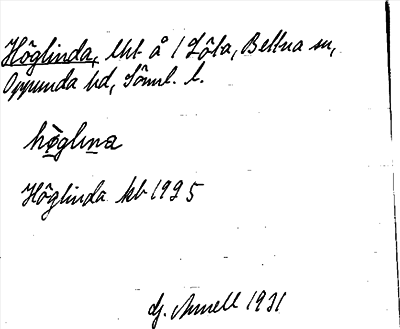 Höglinda, lht å 1 Löta, Bettna sn,
Oppunda hd, Söml. l.
høglına
Höglinda kb 1925
G. Arnell 1931